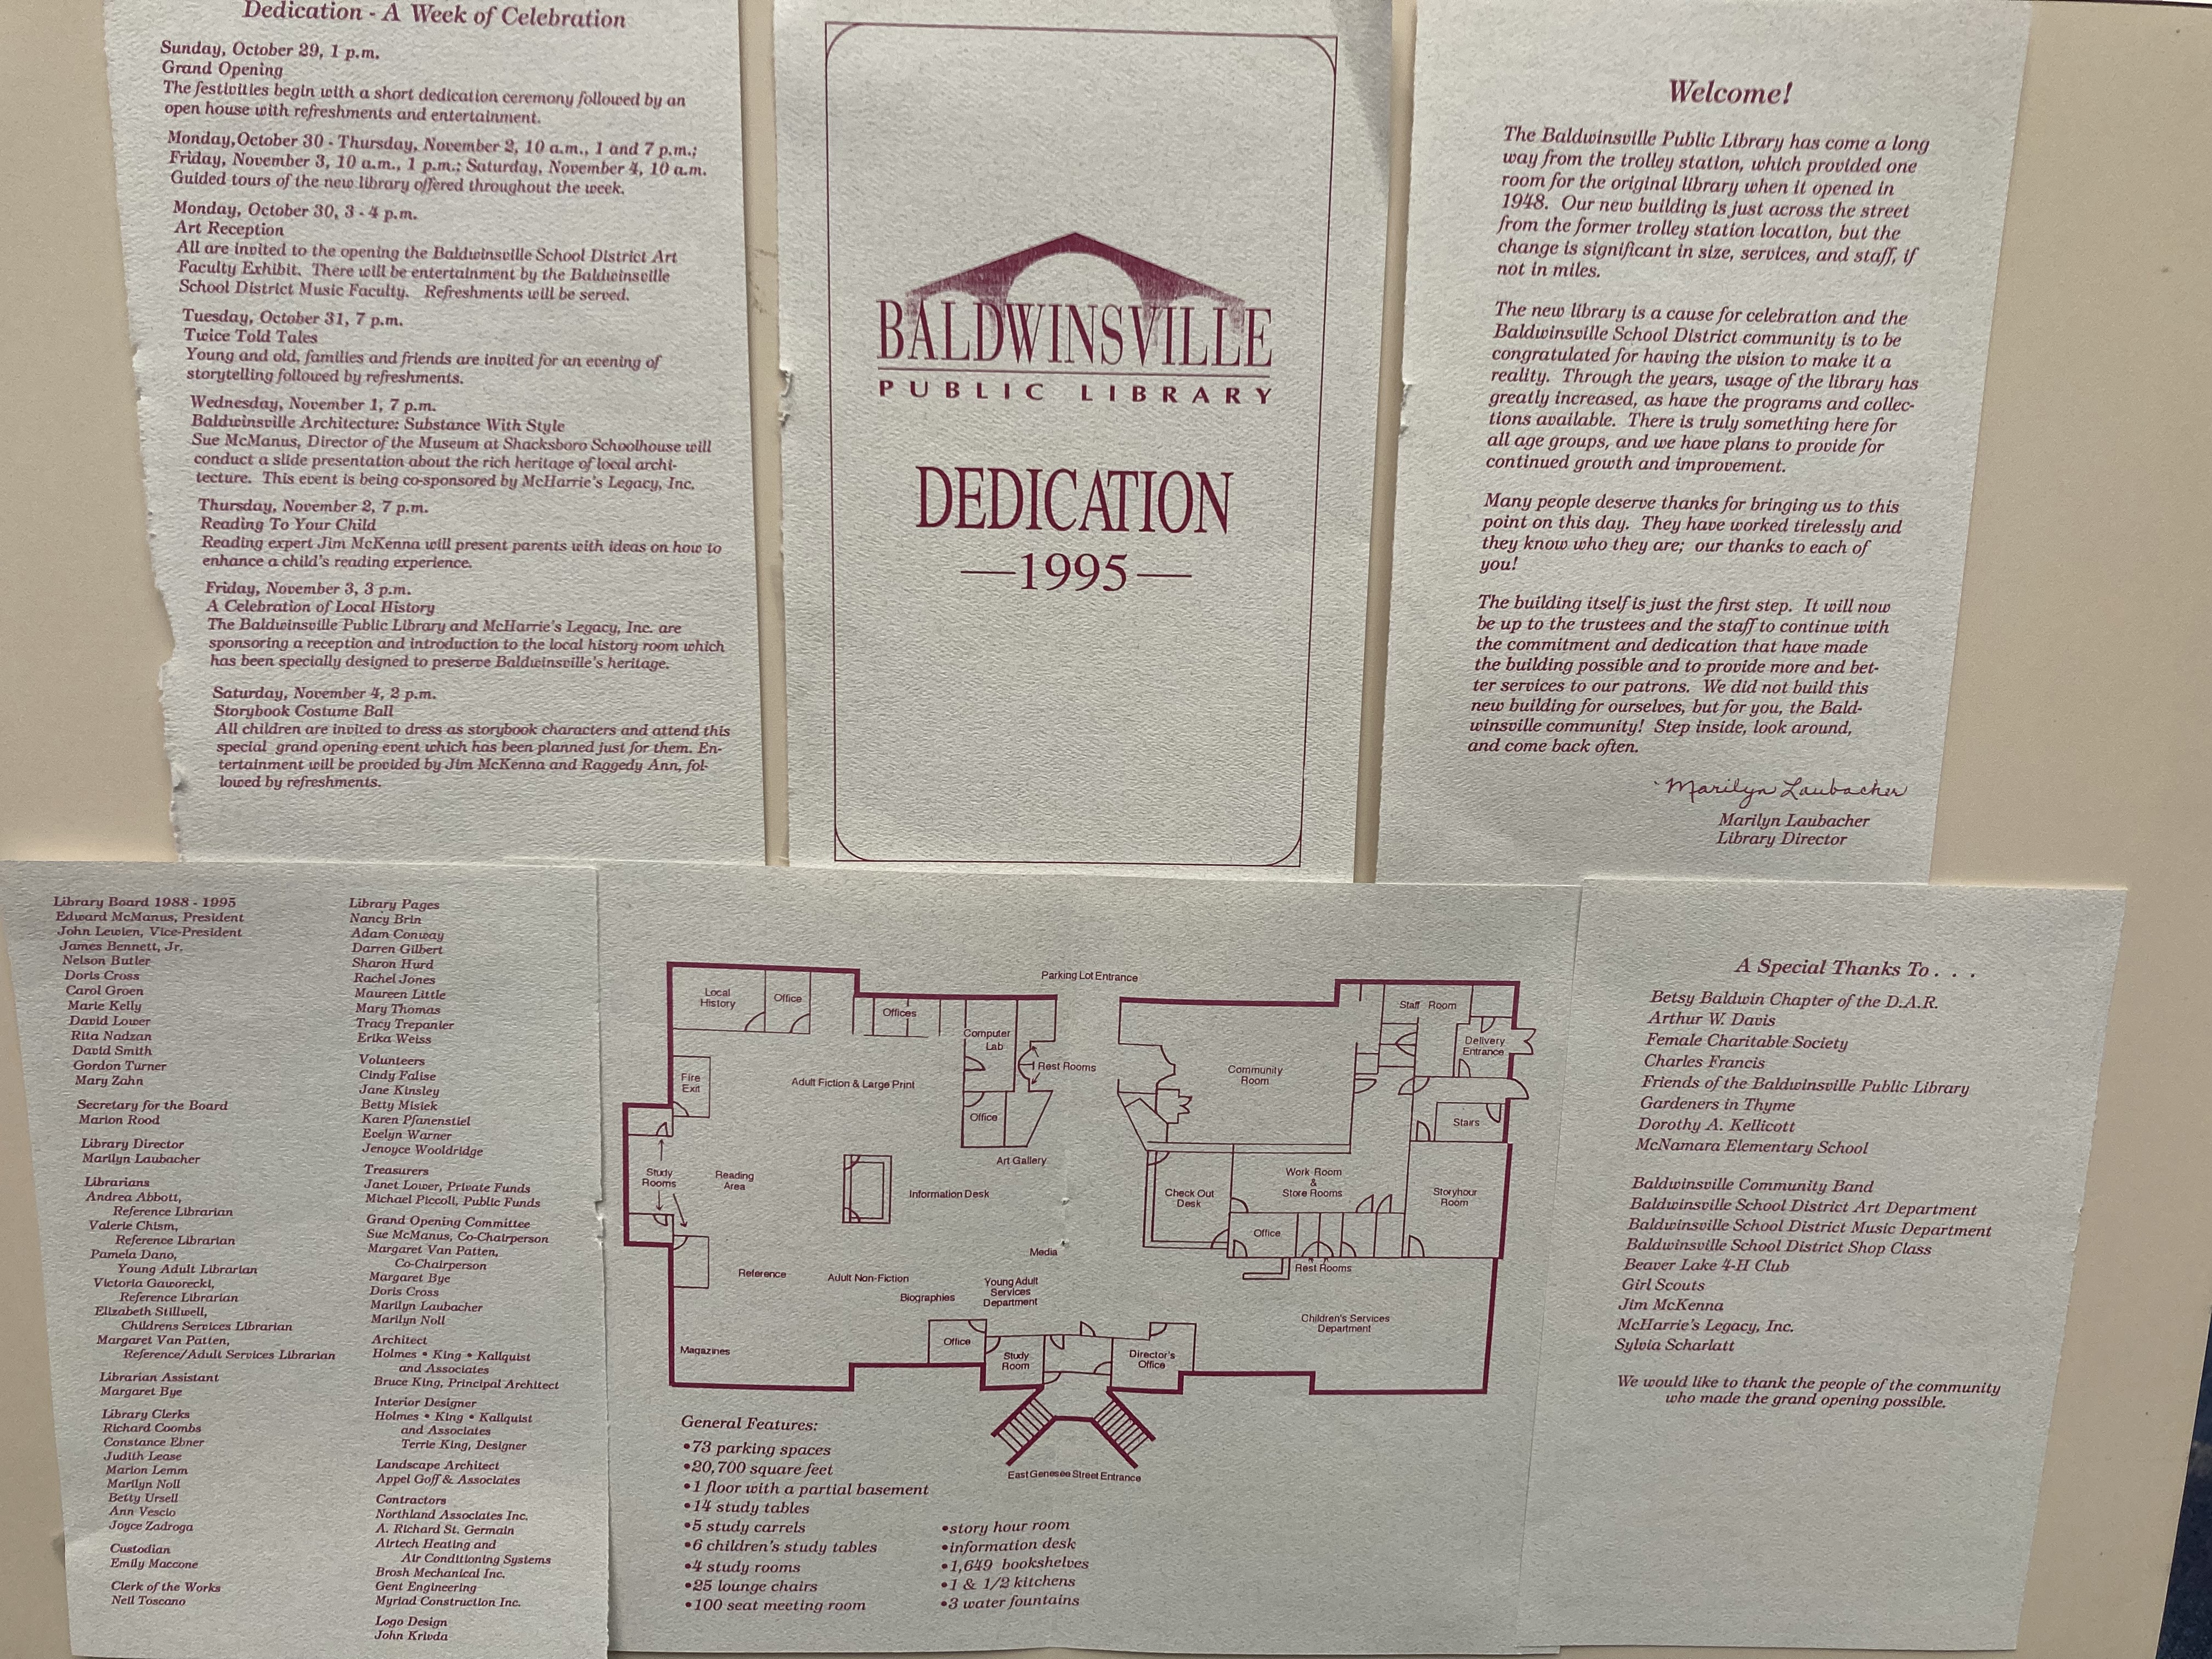 Dedication - A Week of Celebration
Sunday, October 29, 1 p.m.
Grand Opening
The festivities begin with a short dedication ceremony followed by an
open house with refreshments and entertainment.
Monday,October 30 - Thursday, November 2, 10 a.m., 1 and 7 p.m.;
Friday, November 3, 10 a.m., 1 p.m.; Saturday, November 4, 10 a.m.
Guided tours of the new library offered throughout the week.
Monday, October 30, 3 - 4 p.m.
Art Reception
All are invited to the opening the Baldwinsville School District Art
Faculty Exhibit. There will be entertainment by the Baldwinsville
School District Music Faculty. Refreshments will be served.
Tuesday, October 31, 7 p.m.
Twice Told Tales
Young and old, families and friends are invited for an evening of
storytelling followed by refreshments.
Wednesday, November 1, 7 p.m.
Baldwinsville Architecture: Substance With Style
Sue McManus, Director of the Museum at Shacksboro Schoolhouse will
conduct a slide presentation about the rich heritage of local archi-
tecture. This event is being co-sponsored by McHarrie's Legacy, Inc.
Thursday, November 2, 7 p.m.
Reading To Your Child
Reading expert Jim McKenna will present parents with ideas on how to
enhance a child's reading experience.
Friday, November 3, 3 p.m.
A Celebration of Local History
The Baldwinsville Public Library and McHarrie's Legacy, Inc. are
sponsoring a reception and introduction to the local history room which
has been specially designed to preserve Baldwinsville's heritage.
Saturday, November 4, 2 p.m.
Storybook Costume Ball
All children are invited to dress as storybook characters and attend this
special grand opening event which has been planned just for them. En-
tertainment will be provided by Jim McKenna and Raggedy Ann, fol-
lowed by refreshments.
BALDWINSVILLE
PUBLIC LIBRARY
DEDICATION
—1995—
Welcome!
The Baldwinsville Public Library has come a long
way from the trolley station, which provided one
room for the original library when it opened in
1948. Our new building is just across the street
from the former trolley station location, but the
change is significant in size, services, and staff, if
not in miles.
The new library is a cause for celebration and the
Baldwinsville School District community is to be
congratulated for having the vision to make it a
reality. Through the years, usage of the library has
greatly increased, as have the programs and collec-
tions available. There is truly something here for
all age groups, and we have plans to provide for
continued growth and improvement.
Many people deserve thanks for bringing us to this
point on this day. They have worked tirelessly and
they know who they are; our thanks to each of
you!
The building itself is just the first step. It will now
be up to the trustees and the staff to continue with
the commitment and dedication that have made
the building possible and to provide more and bet-
ter services to our patrons. We did not build this
new building for ourselves, but for you, the Bald-
winsville community! Step inside, look around,
and come back often.
Marilyn Laubacher
Marilyn Laubacher
Library Director
Library Board 1988 - 1995
Edward McManus, President
John Lewien, Vice-President
James Bennett, Jr.
Nelson Butler
Doris Cross
Carol Groen
Marie Kelly
David Lower
Rita Nadzan
David Smith
Gordon Turner
Mary Zahn
Secretary for the Board
Marion Rood
Library Director
Marilyn Laubacher
Librarians
Andrea Abbott,
Reference Librarian
Valerie Chism,
Reference Librarian
Pamela Dano,
Young Adult Librarian
Victoria Gaworecki,
Reference Librarian
Elizabeth Stillwell,
Childrens Services Librarian
Margaret Van Patten,
Reference/Adult Services Librarian
Librarian Assistant
Margaret Bye
Library Clerks
Richard Coombs
Constance Ebner
Judith Lease
Marion Lemm
Marilyn Noll
Betty Ursell
Ann Vescio
Joyce Zadroga
Custodian
Emily Maccone
Clerk of the Works
Neil Toscano
Library Pages
Nancy Brin
Adam Conway
Darren Gilbert
Sharon Hurd
Rachel Jones
Maureen Little
Mary Thomas
Tracy Trepanier
Erika Weiss
Volunteers
Cindy Falise
Jane Kinsley
Betty Misiek
Karen Pfanenstiel
Evelyn Warner
Jenoyce Wooldridge
Treasurers
Janet Lower, Private Funds
Michael Piccoli, Public Funds
Grand Opening Committee
Sue McManus, Co-Chairperson
Margaret Van Patten,
Co-Chairperson
Margaret Bye
Doris Cross
Marilyn Laubacher
Marilyn Noll
Architect
Holmes • King • Kallquist
and Associates
Bruce King, Principal Architect
Interior Designer
Holmes • King • Kallquist
and Associates
Terrie King, Designer
Landscape Architect
Appel Goff & Associates
Contractors
Northland Associates Inc.
A. Richard St. Germain
Airtech Heating and
Air Conditioning Systems
Brosh Mechanical Inc.
Gent Engineering
Myriad Construction Inc.
Logo Design
John Krivda
Parking Lot Entrance
Local
History
Office
Offices
Computer
Lab
Rest Rooms
Community
Room
Staff Room
Delivery
Entrance
Fire
Exit
Adult Fiction & Large Print
Office
Stairs
Study
Rooms
Reading
Area
Information Desk
Art Gallery
Check Out
Desk
Work Room
&
Store Rooms
Storyhour
Room
Office
Media
Rest Rooms
Reference
Adult Non-Fiction
Biographies
Young Adult
Services
Department
Children's Services
Department
Magazines
Office
Study
Room
Director's
Office
East Genesee Street Entrance
General Features:
•73 parking spaces
•20,700 square feet
•1 floor with a partial basement
•14 study tables
•5 study carrels
•6 children's study tables
•4 study rooms
•25 lounge chairs
•100 seat meeting room
•story hour room
•information desk
•1,649 bookshelves
•1 & 1/2 kitchens
•3 water fountains
A Special Thanks To . . .
Betsy Baldwin Chapter of the D.A.R.
Arthur W. Davis
Female Charitable Society
Charles Francis
Friends of the Baldwinsville Public Library
Gardeners in Thyme
Dorothy A. Kellicott
McNamara Elementary School
Baldwinsville Community Band
Baldwinsville School District Art Department
Baldwinsville School District Music Department
Baldwinsville School District Shop Class
Beaver Lake 4-H Club
Girl Scouts
Jim McKenna
McHarrie's Legacy, Inc.
Sylvia Scharlatt
We would like to thank the people of the community
who made the grand opening possible.